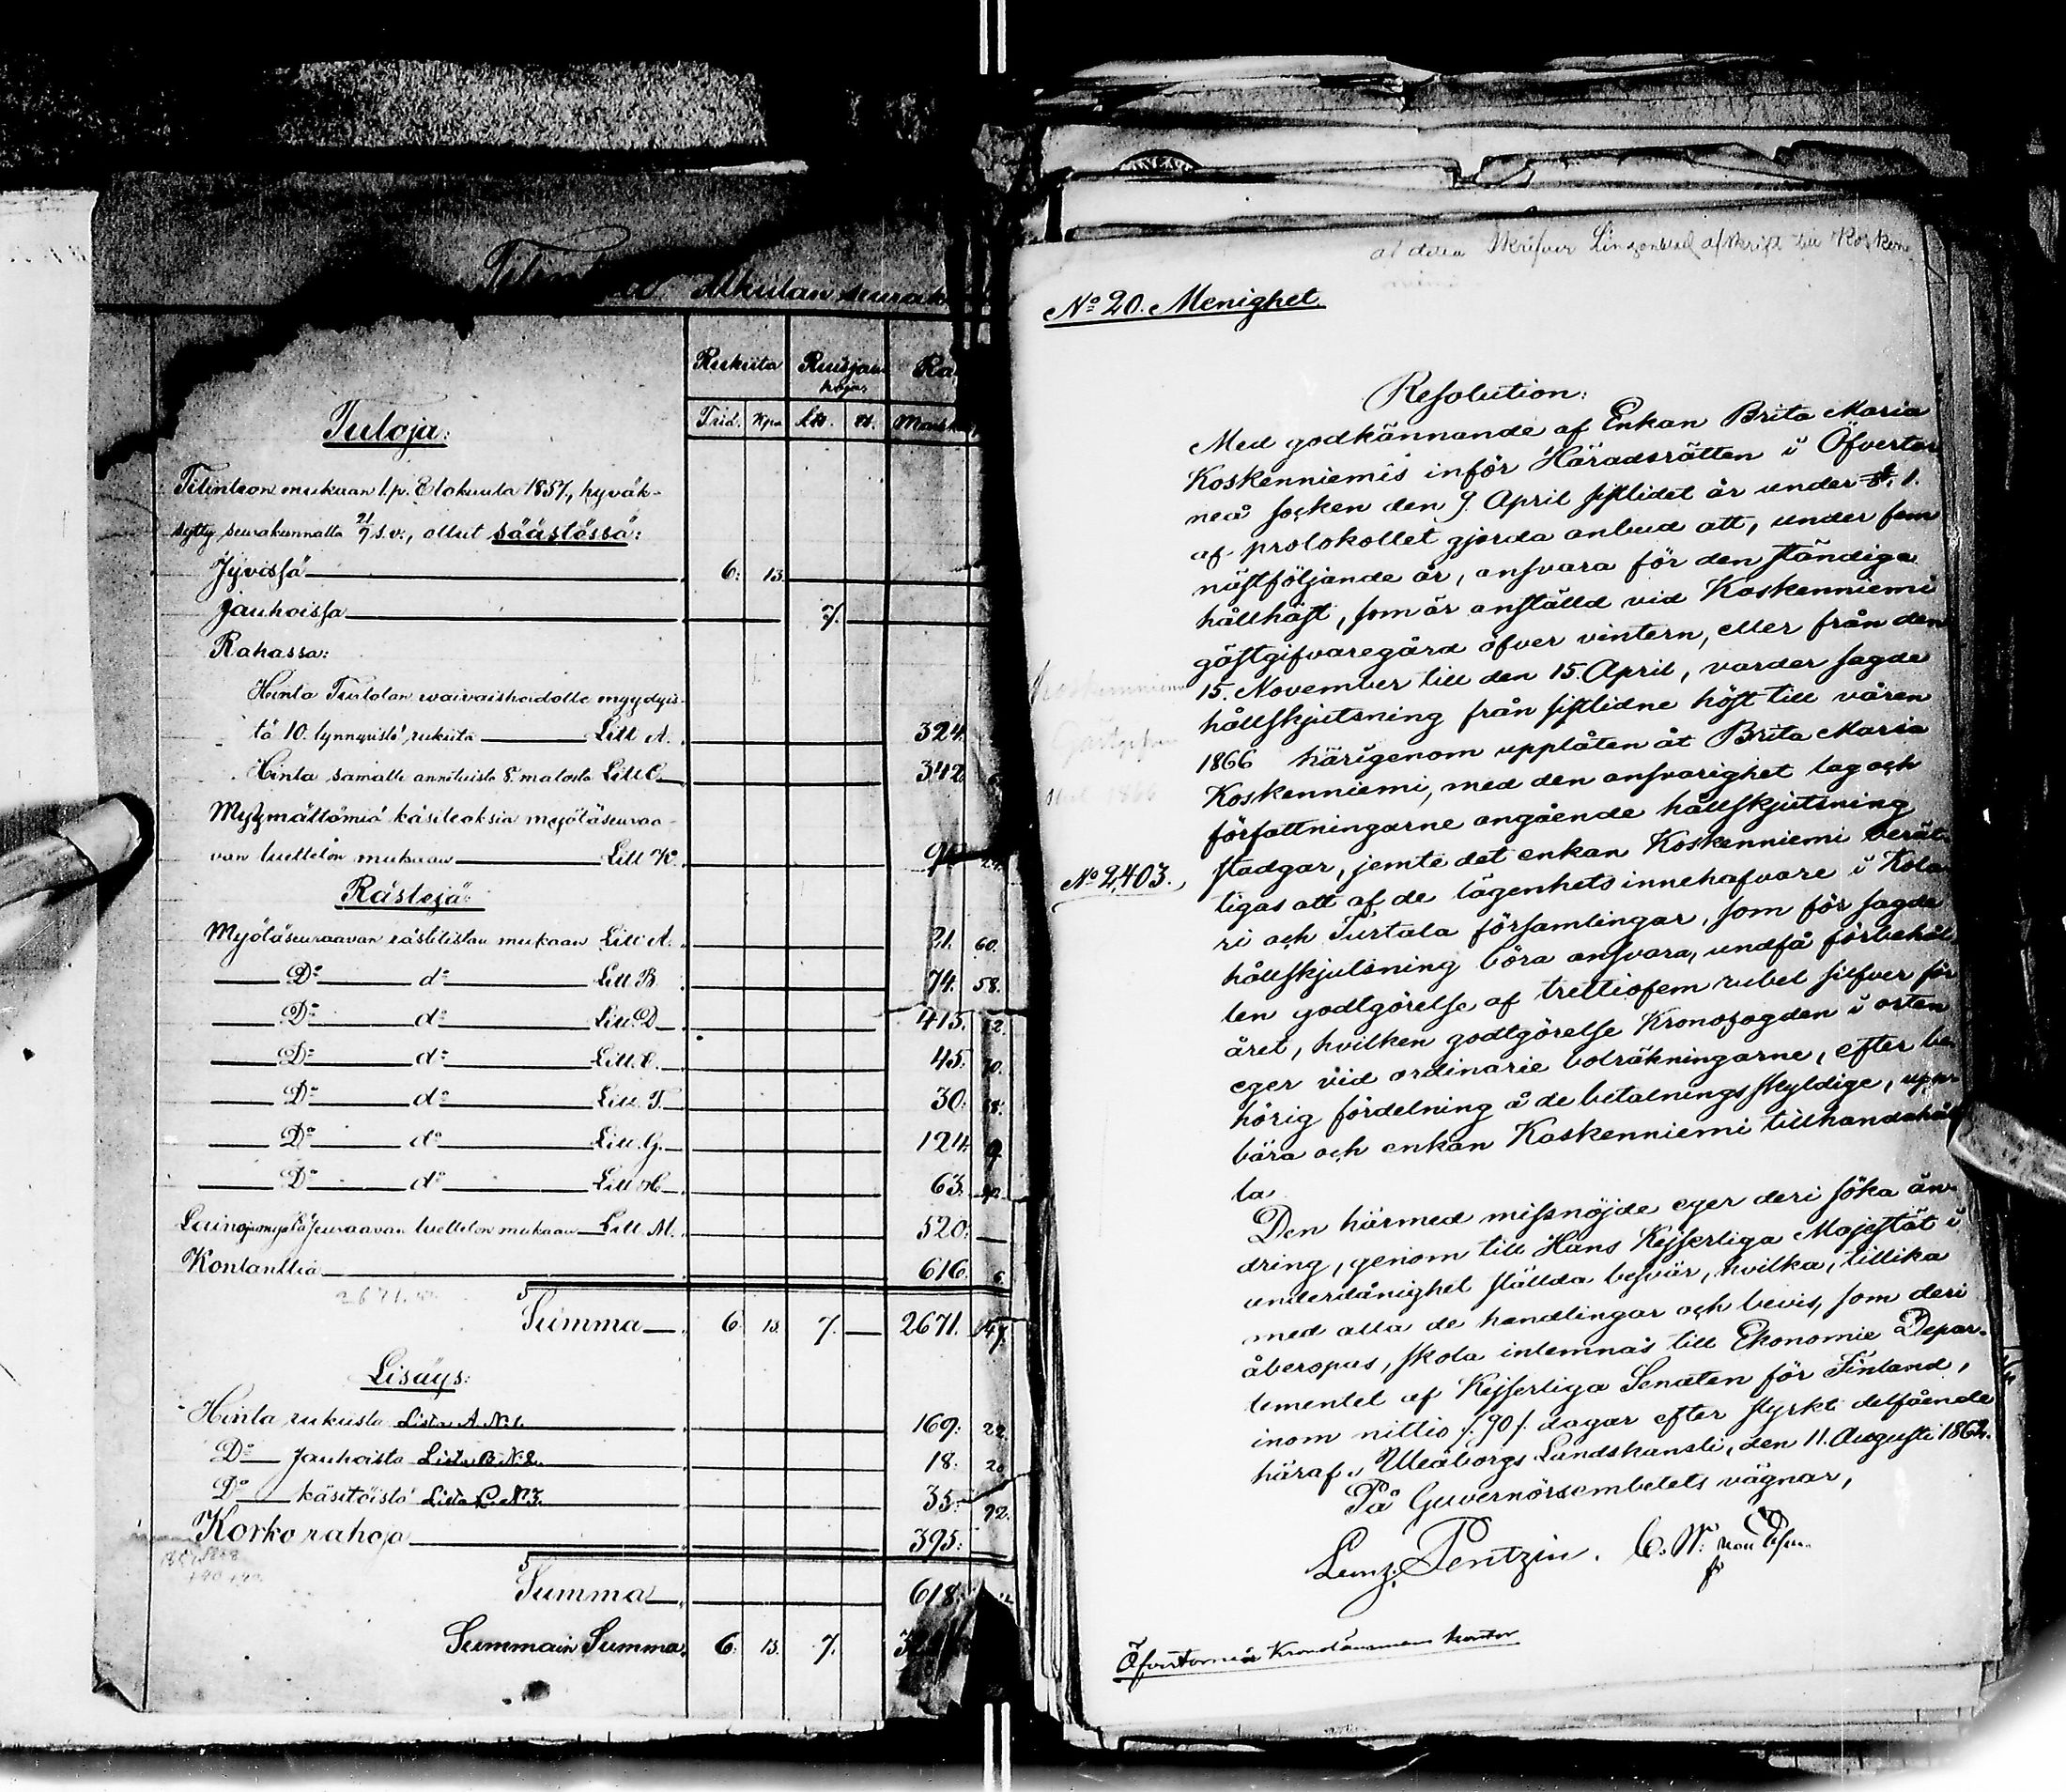 Alkulan seurak
Rukiita Ruisjau Ra
hoja
Trid. Kpa L℔. ℔. Mark
Tuloja:
Tilinteon mukaan l.p. Elokuuta 1857, hyväk-
sytty seurakunnalta 21/9 s.v., ollut säästössä:
Jyvissä 6. 13.
Jauhoissa 7.
Rahassa:
Hinta Turtolan waivaishoidolle myydyis-
tä 10. tynnyristä rukiita Litt A. 324.
Hinta samalle annetuista 8. matosta Litt C. 342. 6
Myymättömiä käsiteoksia myötäseuraa-
van luettelon mukaan Litt K.
Rästejä:
Myötäseuraavan rästilistan mukaan Litt A. 21. 60.
Do do Litt B. 74. 58.
Do do Litt D. 415. 12.
Do do Litt E. 45. 70.
Do do Litt F. 30. 18.
Do do Litt G. 124. 9.
Do do Litt H. 63.
Lainoja myötäseuraavan luettelon mukaan Litt M. 520. —
Kontanttia 616. 6.
2671.
Summa 6. 13. 7. — 2671. 47.
Lisäys:
Hinta rukiista Lista A. N:1. 169. 22.
Do Jauhoista Lista B. N:2. 18. 20
Do käsitöistä Lista C. N:3. 35. 92.
Korko rahoja 395.
Summa 618.
Summain Summa. 6. 13. 7.
at detta Skrifver Lingonblad afskrift till Kosken
No 20. Menighet.
Resolution:
Med godkännande af Enkan Brita Maria
Koskenniemis inför Häradsrätten i Öfvertor
neå socken den 9. April sistlidet år under §. 1.
af protokollet gjorda anbud att, under fem
nästföljande år, ansvara för den ständiga
hållhäst, som är anställd vid Koskenniemi
gästgifvaregård öfver vintern, eller från den
15. November till den 15. April, varder sagde
hållskjutsning från sistlidne höst till våren
1866 härigenom upplåten åt Brita Maria
Koskenniemi, med den ansvarighet lag och
författningarne angående hållskjutsning
No 2,403. stadgar, jemte det enkan Koskenniemi berät
tigas att af de lägenhetsinnehafvare i Kola
ri och Turtola församlingar, som för sagde
hållskjutsning böra ansvara, undfå förbehål
len godtgörelse af trettiofem rubel silfver för
året, hvilken godtgörelse Kronofogden i orten
eger vid ordinarie boträkningarne, efter be
hörig fördelning å de betalningsskyldige, upp-
bära och enkan Koskenniemi tillhandahål
la.
Den härmed missnöjde eger deri söka än-
dring, genom till Hans Kejserliga Majestät i
underdånighet ställda besvär, hvilka, tillika
med alla de handlingar och bevis, som deri
åberopas, skola inlemnas till Ekonomie Depar-
tementet af Kejserliga Senaten för Finland,
inom nittio /.90/. dagar efter styrkt delfående
häraf. Uleåborgs Landskansli, den 11. Augusti 1862.
På Guvernörsembetets vägnar,
Lenz. Pentzin. C. W. von
Öfvertorneå Kronolänsmans kontor